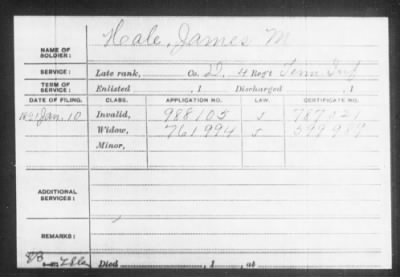 NAME OF SOLDIER: Hale, James M
SERVICE: Late rank, Co. D, 4 Reg't Tenn Inf
TERM OF SERVICE: Enlisted , 1 Discharged , 1
DATE OF FILING. CLASS. APPLICATION NO. LAW. CERTIFICATE NO.
1891 Jan. 10 Invalid, 988105 S
Widow, 761994 S
Minor,
ADDITIONAL SERVICES:
REMARKS:
Died , 1 , at